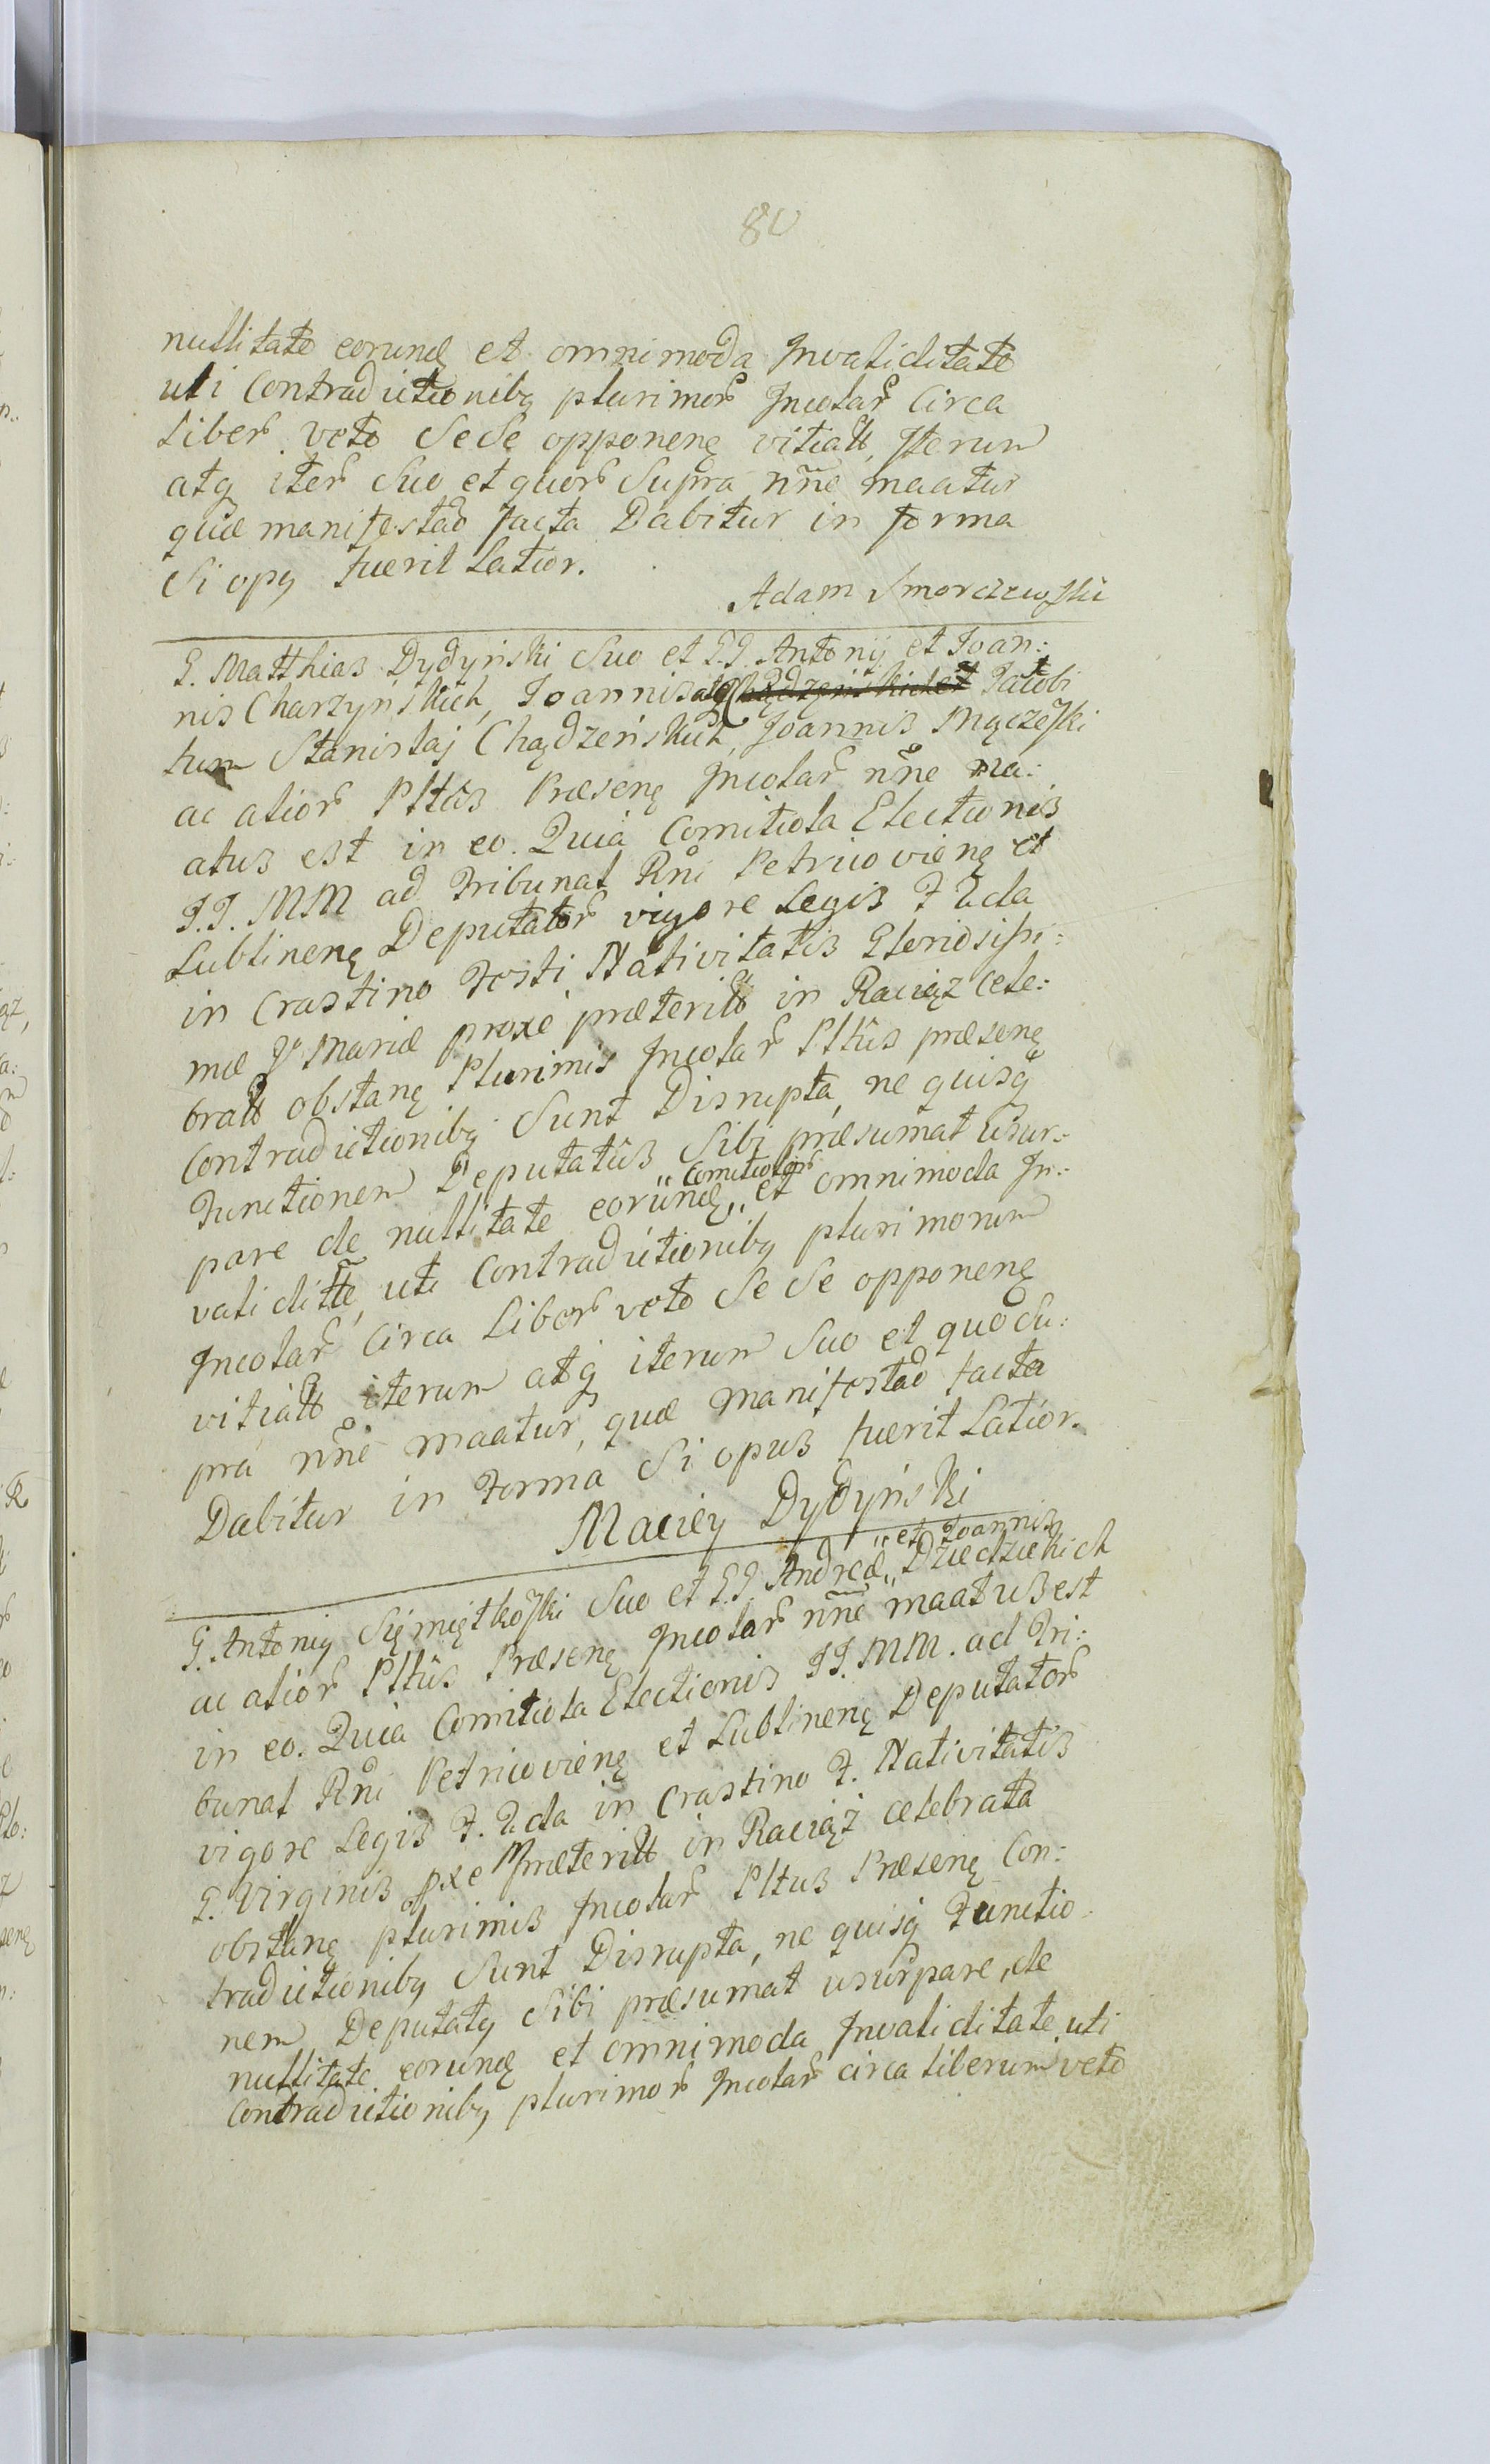 80
nullitate eorund et omnimoda Invaliditate
uti Contradictionibq plurimor Incolar Circa
Liber veto Sese opponenę vitiatt, Iterum
atq iter Suo et quor Supra nñe maatur
quæ manifestao facta Dabitur in forma
Si opq fuerit Latior.
Adam Smorczewski
G. Matthias Dydyński Suo et G.G. Antonij et Joan:
nis Charzyńskich, Joannis atq Chądzeńskich et Jacobi
tum Stanislaj Chądzeńskich, Joannis Mączeski
ac alior Plttûs Præsenę Incolar nñe ma:
atus est in eo. Quia Comitiola Electionis
J.J. MM ad Tribunal Rñi Petricovienę et
Lublinenę Deputator vigore Legis Fñda
in Crastino Festi Nativitatis Gloriosissi:
mæ V Mariæ proxe præteritt in Raciąż Cele:
bratt obstanę Plurimis Incolar Plttûs præsenę
Contradictionibq Sunt Disrupta, ne quisq
Functionem Deputatûs Sibi præsumat usur:
pare de nullitate eorund „Comitiolor„ et omnimoda In:
validitte, uti Contradictionibq plurimorum
Incolar Circa Liber veto Se Se opponenę
vitiatt iterum atq iterum Suo et quo Su:
pra nñe maatur, quæ manifestao facta
Dabitur in Forma Si opus fuerit Latior.
Maciey Dydyński
G. Antonig Sięmiątkoski Suo et G.G. Andreæ „et Joannis„ Dziedzickich
ac alior Plttûs Præsenę Incolar nñe maatus est
in eo. Quia Comitiola Electionis JJ. MM. ad Tri:
bunal Rñi Petricovienę et Lublinenę Deputator
vigore Legis F. Fñda in Crastino F. Nativitatis
G. Virginis pxe Præteritt in Raciąż celebrata
obstanę plurimis Incolar Plttus Præsenę Con:
tradictionibq Sunt Disrupta, ne quisq Functio:
nem Deputatq Sibi præsumat usurpare, de
nullitate eorund et omnimoda Invaliditate, uti
Contradictionibq plurimor Incolar circa liberum veto